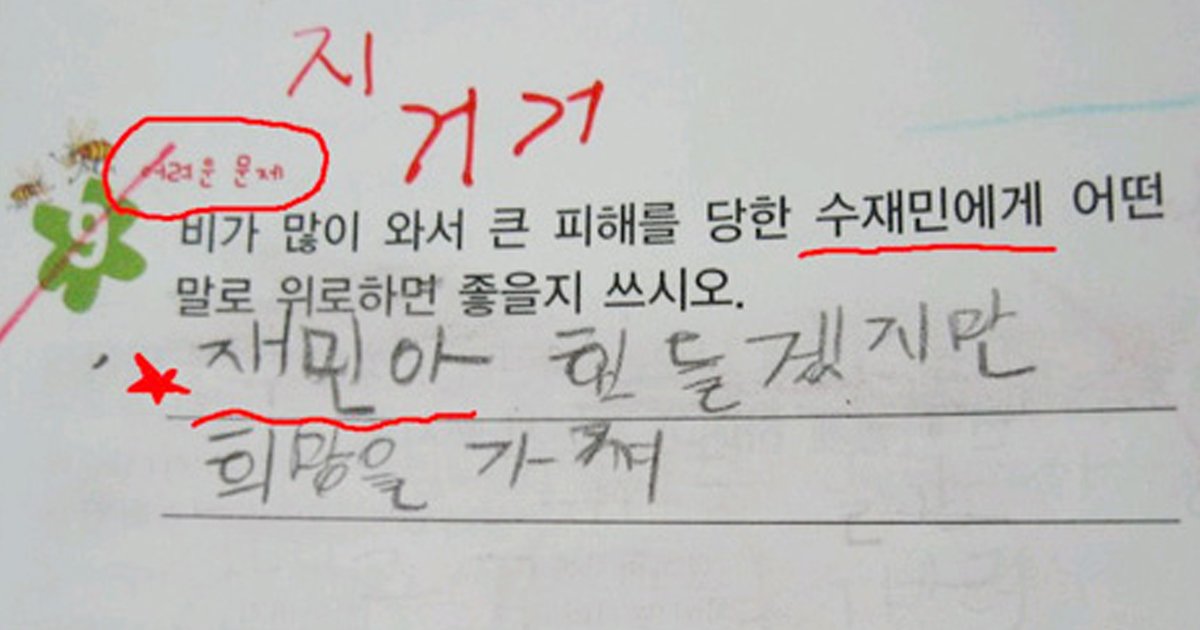 지거거
어려운 문제
9
비가 많이 와서 큰 피해를 당한 수재민에게 어떤
말로 위로하면 좋을지 쓰시오.
재민아 힌들겠지만
희망을 가져